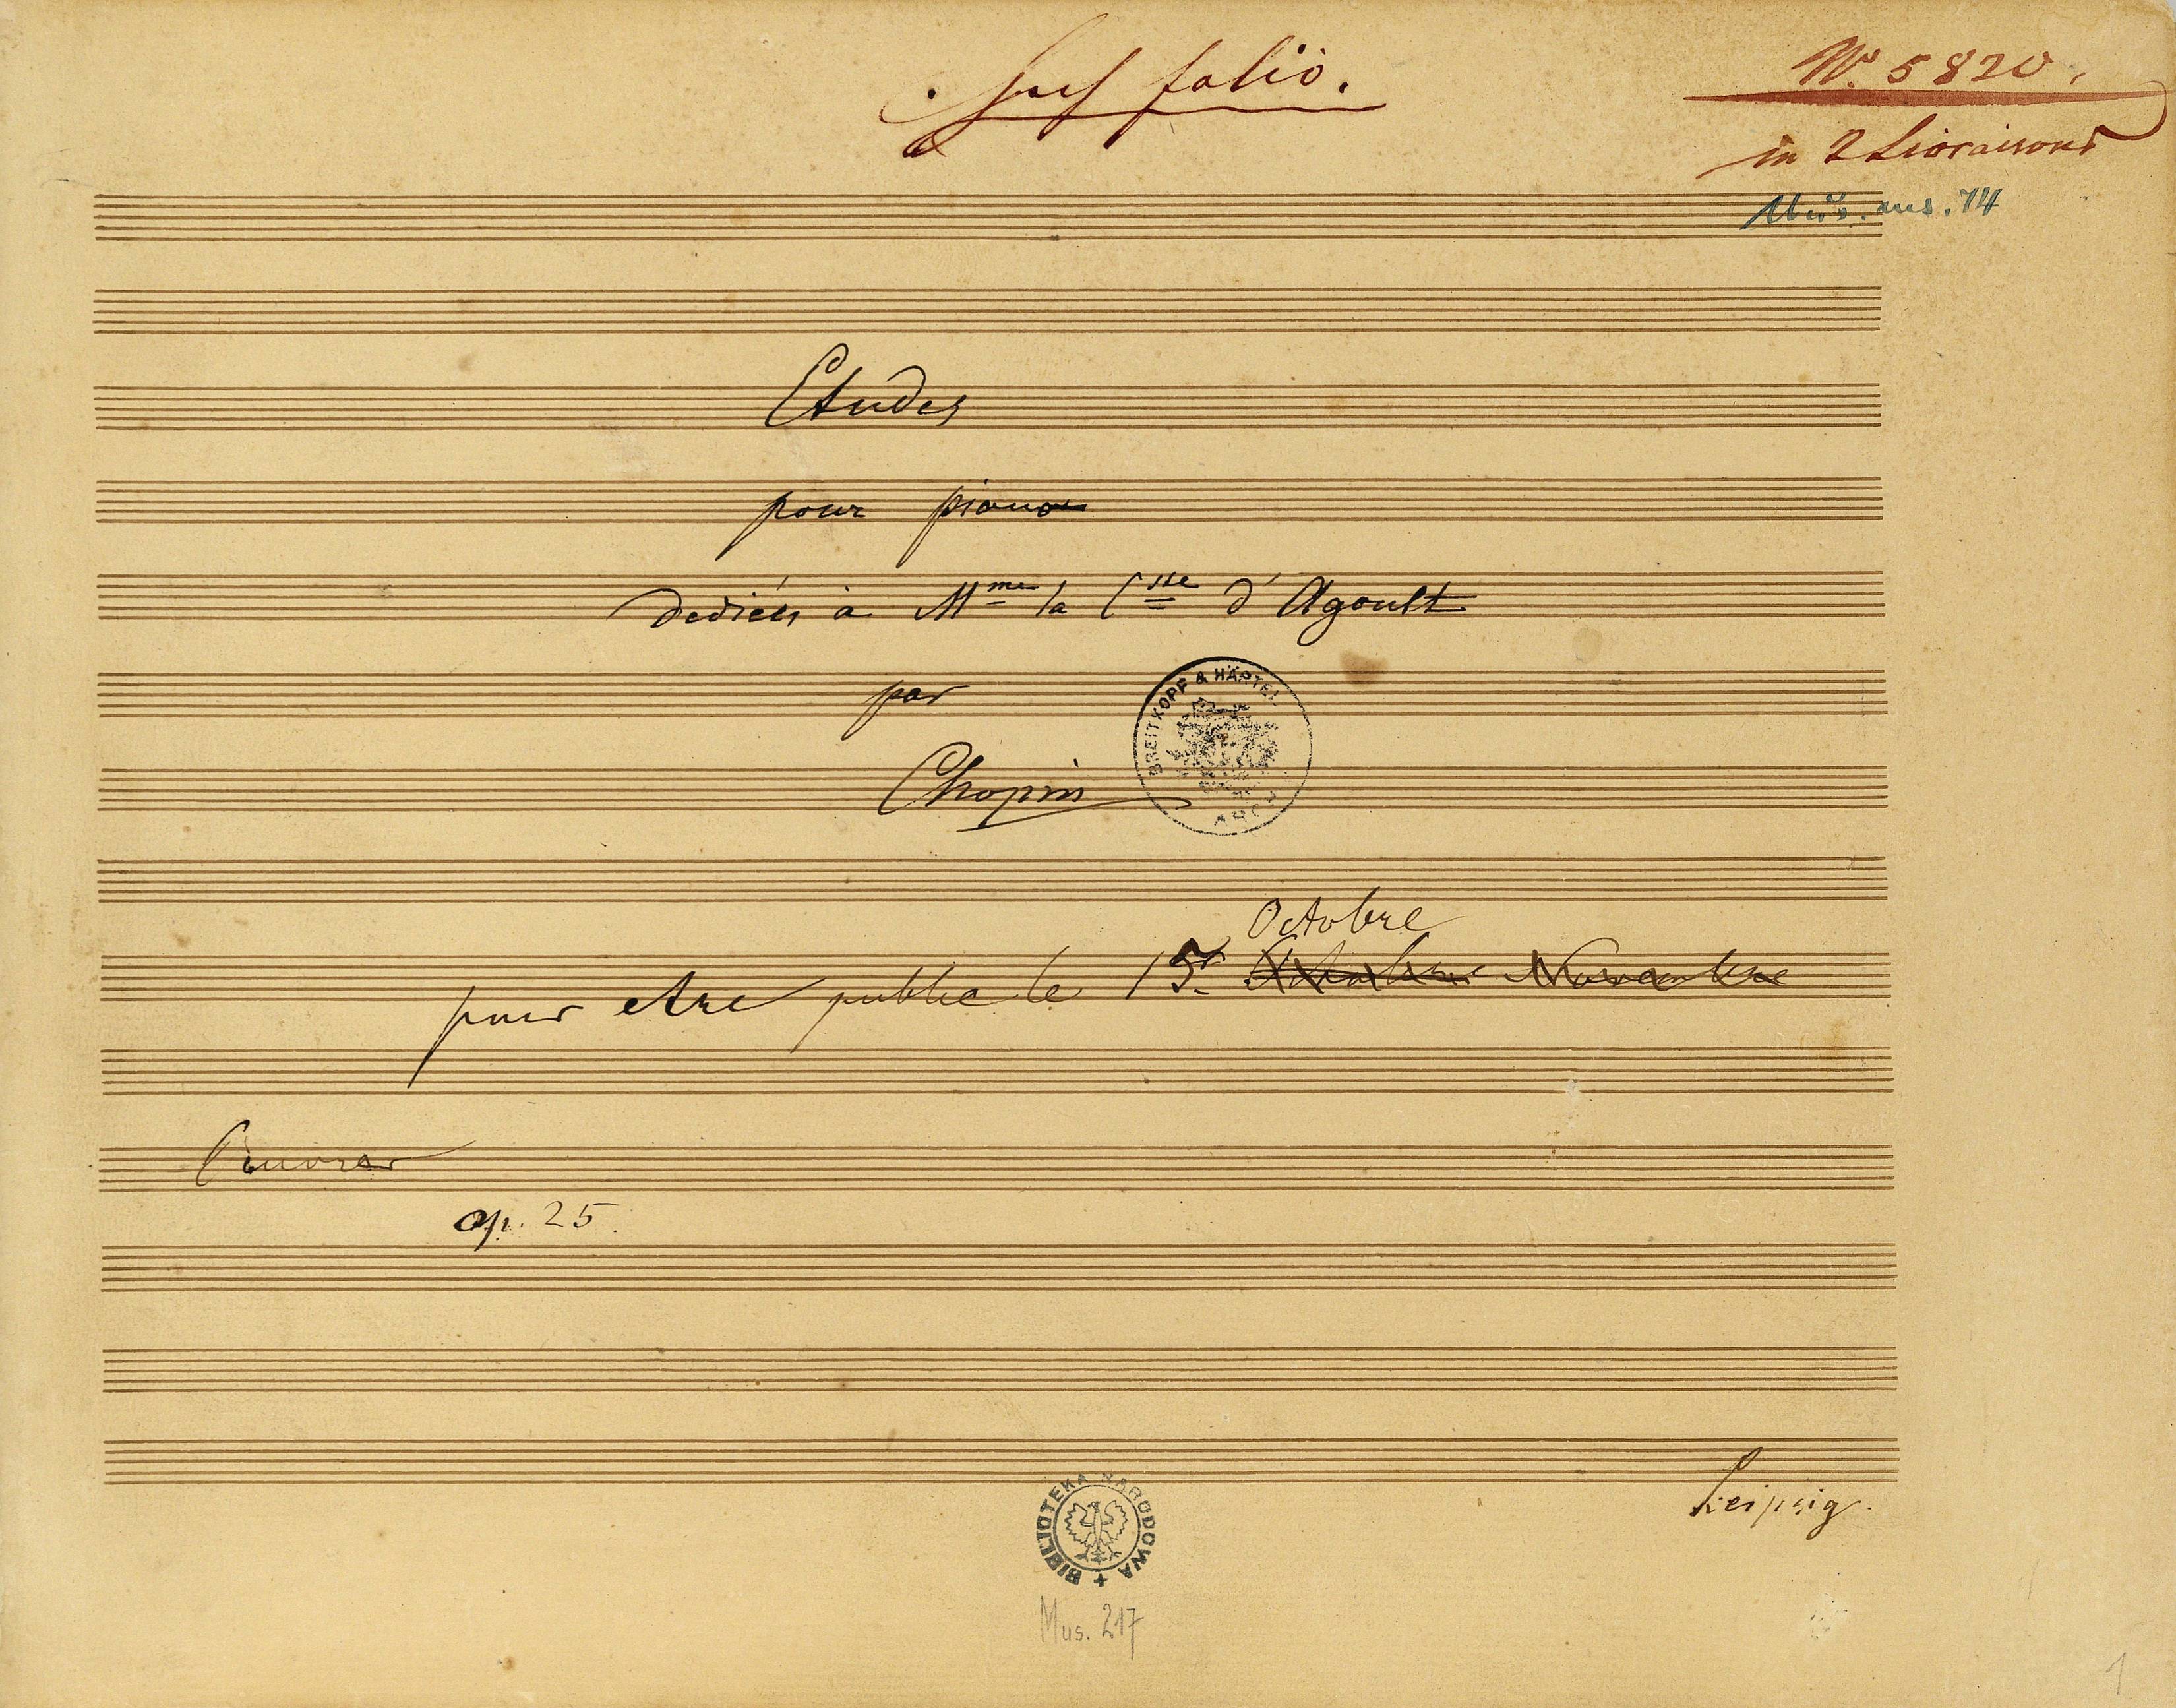 folio.
No 5820.
in 2 Livraisons
Mus. ans. 14
Etudes
pour piano
dediées à Mme la Csse d'Agoult
par
BREITKOPF & HÄRTEL
Chopin
Octobre
pour etre publié le 15 Novembre
Oeuvres
op. 25.
Leipsig.
BIBLIOTEKA NARODOWA
Mus. 217
1